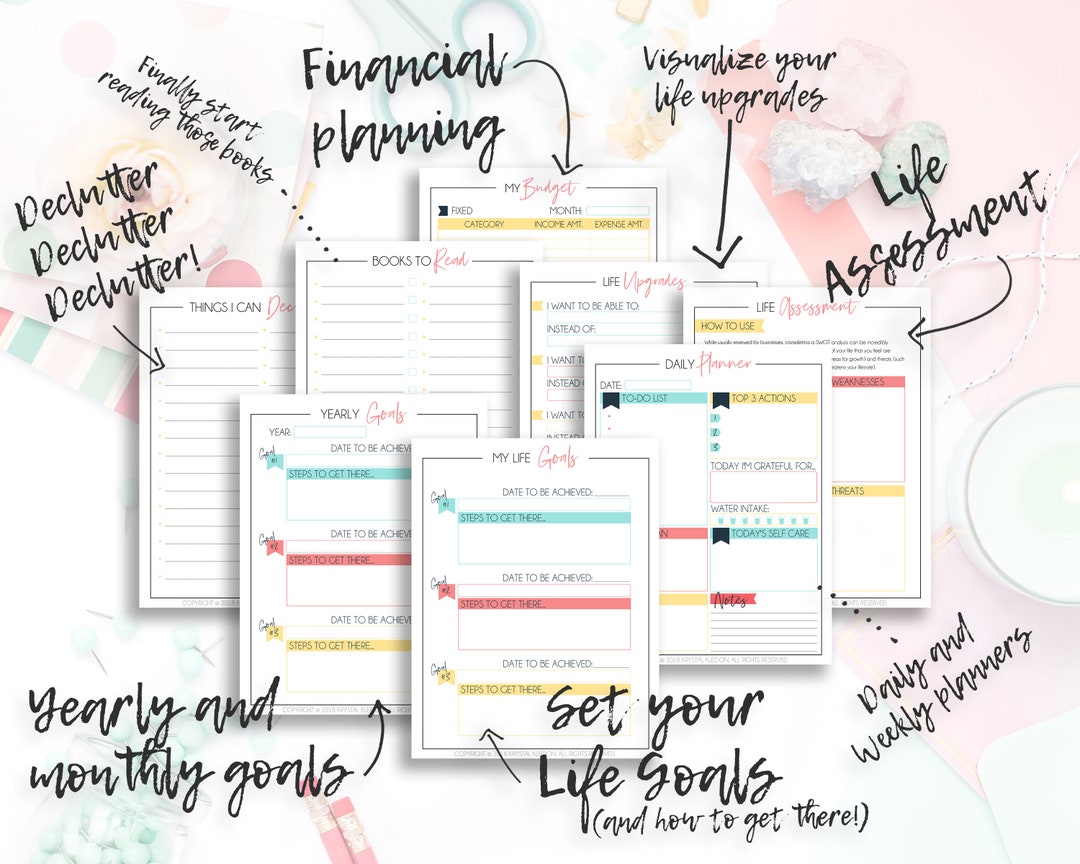 Financial
planning
Visualize your
life upgrades
Finally start
reading those books
Declutter
Declutter
Declutter!
Life
Assessment
MY Budget
FIXED
MONTH:
CATEGORY INCOME AMT. EXPENSE AMT.
BOOKS TO Read
THINGS I CAN Dec
LIFE Upgrades
I WANT TO BE ABLE TO:
INSTEAD OF:
I WANT TO
INSTEAD O
I WANT TO
INSTEAD O
LIFE Assessment
HOW TO USE
While usually reserved for businesses, completing a SWOT analysis can be incredibly
of your life that you feel are
eas for growth) and threats (such
eatens your lifestyle).
WEAKNESSES
THREATS
DAILY Planner
DATE:
TO-DO LIST
TOP 3 ACTIONS
1
2
3
TODAY I'M GRATEFUL FOR...
WATER INTAKE:
AN
TODAY'S SELF CARE
Notes
© 2018 KRYSTAL KLEIDON. ALL RIGHTS RESERVED.
ALL RIGHTS RESERVED.
COPYRIGHT © 2018 KRYSTAL K
YEARLY Goals
YEAR:
DATE TO BE ACHIEVE
Goal #1
STEPS TO GET THERE...
DATE TO BE ACHIEVE
Goal #2
STEPS TO GET THERE...
DATE TO BE ACHIEVE
Goal #3
STEPS TO GET THERE...
COPYRIGHT © 2018 KRYSTAL K
MY LIFE Goals
DATE TO BE ACHIEVED:
Goal #1
STEPS TO GET THERE...
DATE TO BE ACHIEVED:
Goal #2
STEPS TO GET THERE...
DATE TO BE ACHIEVED:
Goal #3
STEPS TO GET THERE...
COPYRIGHT © 2018 KRYSTAL KLEIDON. ALL RIGHTS RESERVED.
Yearly and
monthly goals
Set your
Life Goals
(and how to get there!)
Daily and
Weekly planners